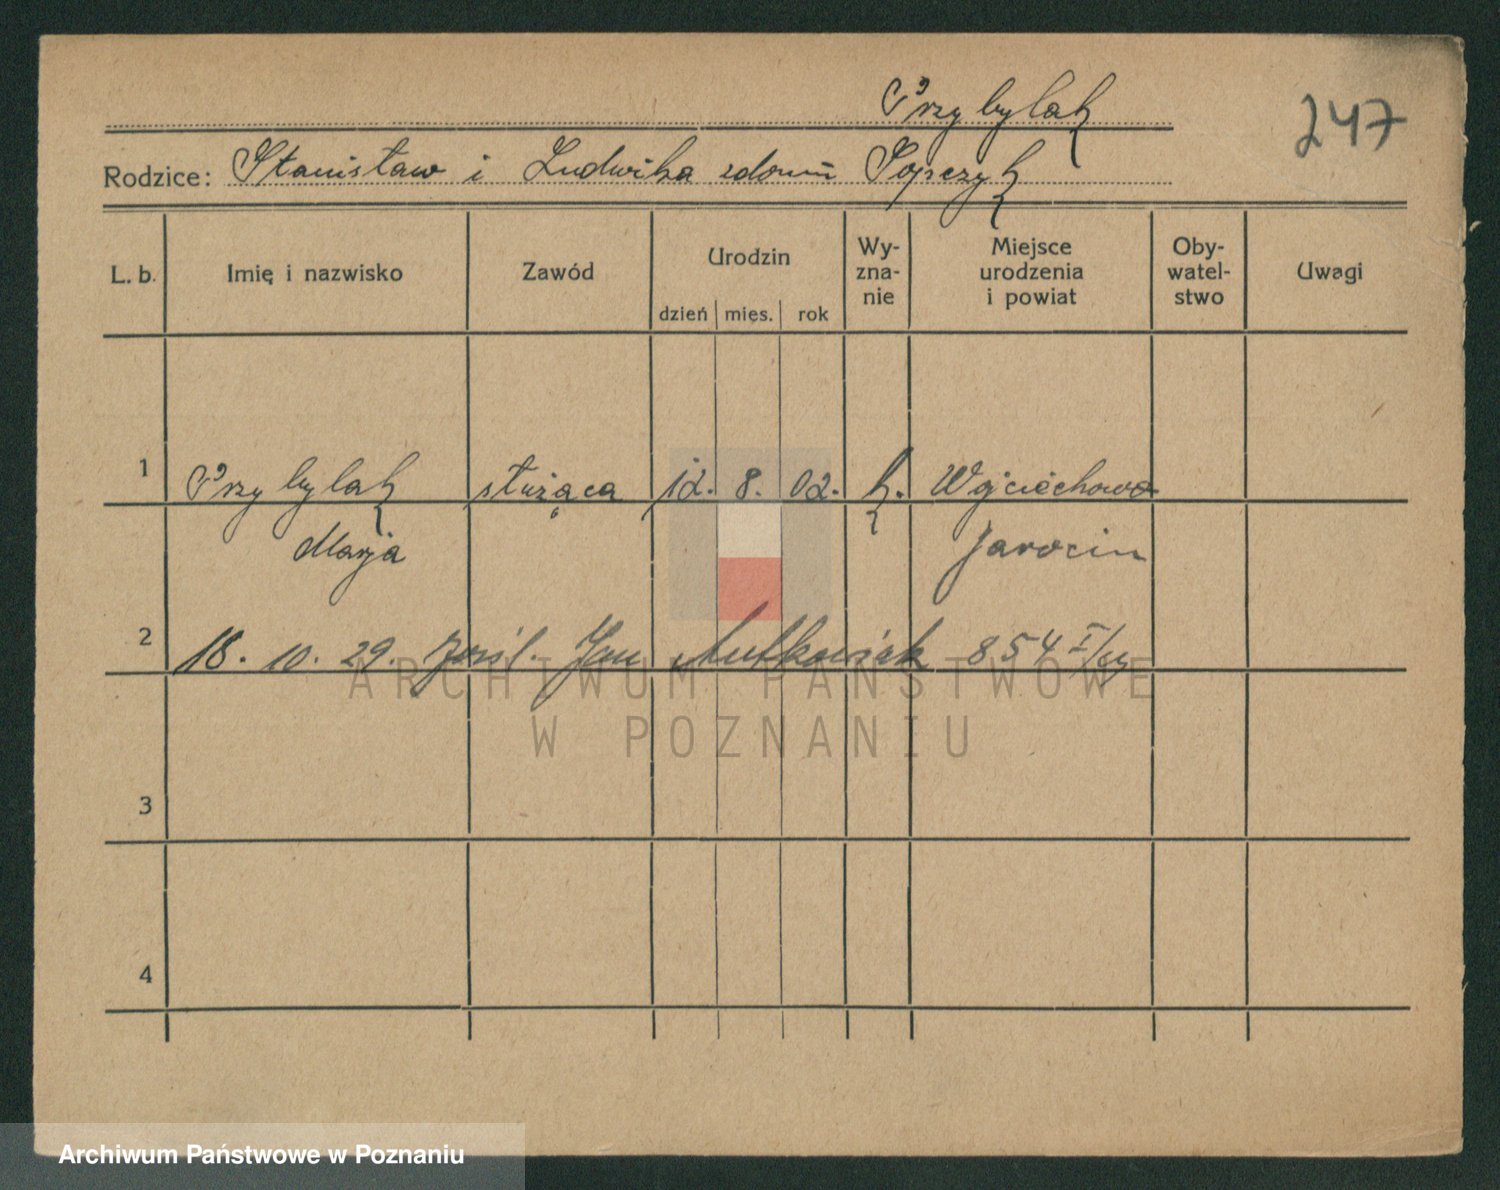 Przybylak
247
Rodzice: Stanisław i Ludwika zdomu
L. b. Imię i nazwisko Zawód Urodzin dzień mies. rok Wy-zna-nie Miejsce urodzenia i powiat Oby-watel-stwo Uwagi
1 Przybylak służąca 12. 8. 02. k. Wojciechowo
Marja Jarocin
2 18. 10. 29. Jan 854 I
ARCHIWUM PAŃSTWOWE
W POZNANIU
3
4
Archiwum Państwowe w Poznaniu